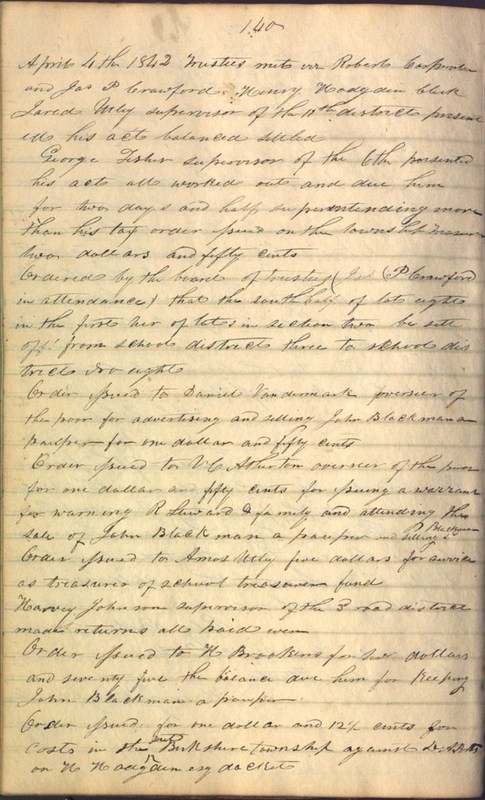 140
April 4th 1842 Trustees met viz Robert Carpenter
and Jas P Crawford Henry Hodgden Clerk
Jared Utley supervisor of the 11th district present
ed his acts balanced settled
George Fisher supervisor of the 6th presented
his acts all worked out and due him
for two days and half superentending more
than his tax order isued on the township Treasurer
two dollars and fifty cents
Ordered by the board of trustees (Jas P Crawford
in attendance) that the south half of lot eight
in the first ter of lots in section two be sett
off from school district three to school dis
trict No eight
Order isued to Daniel Vandemark overseer of
the poor for advertising and selling John Blackman a
pauper for one dollar and fifty cents
Order isued to V C Atherton overseer of the poor
for one dollar and fifty cents for isuing a warrant
for warning R Steward & family and attending the
sale of John Blackman a pauper and selling s Blackman
Order isued to Amos Utley five dollars for service
as treasurer of school treasurer fund
Harvey Johnson supervisor of the 3 road district
made returns all paid even
Order isued to H Brookins for dollars
and seventy five the balance due him for keeping
John Blackman a pauper
Order isued for one dollar and 12½ cents for
costs in the suit Berkshire township against
on H Hodgden esq docket